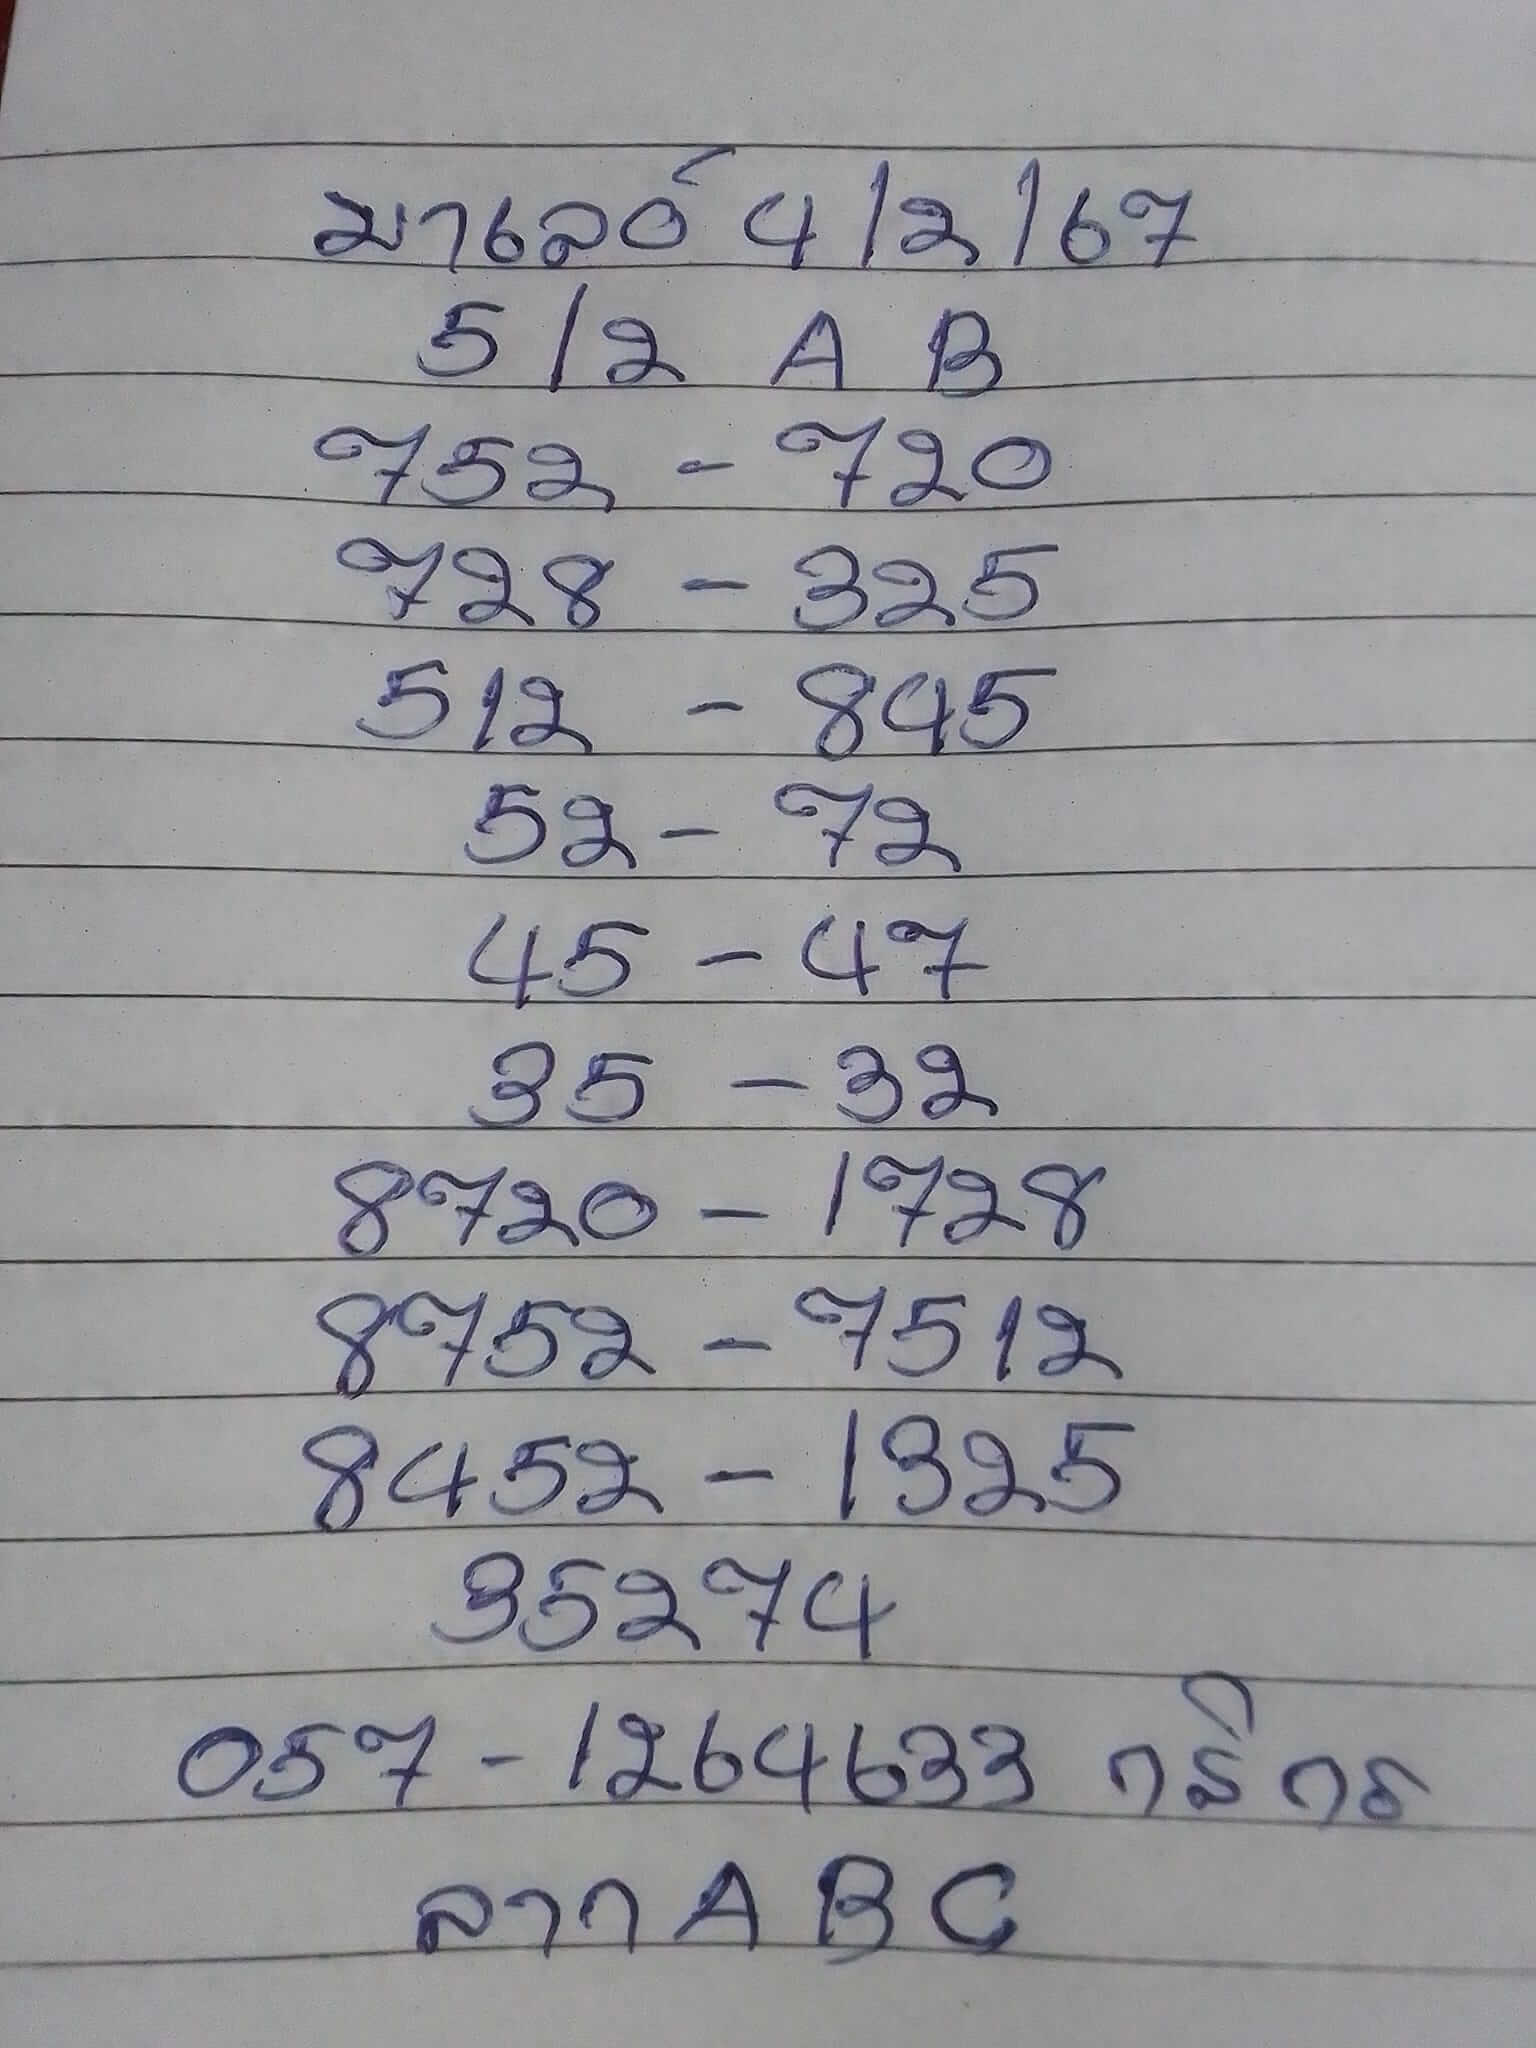 มาเลย์ 4/2/67
5/2 A B
752 - 720
728 - 325
512 - 845
52 - 72
45 - 47
35 - 32
8720 - 1728
8752 - 7512
8452 - 1325
35274
057 - 1264633 กสิกร
ลาก A B C